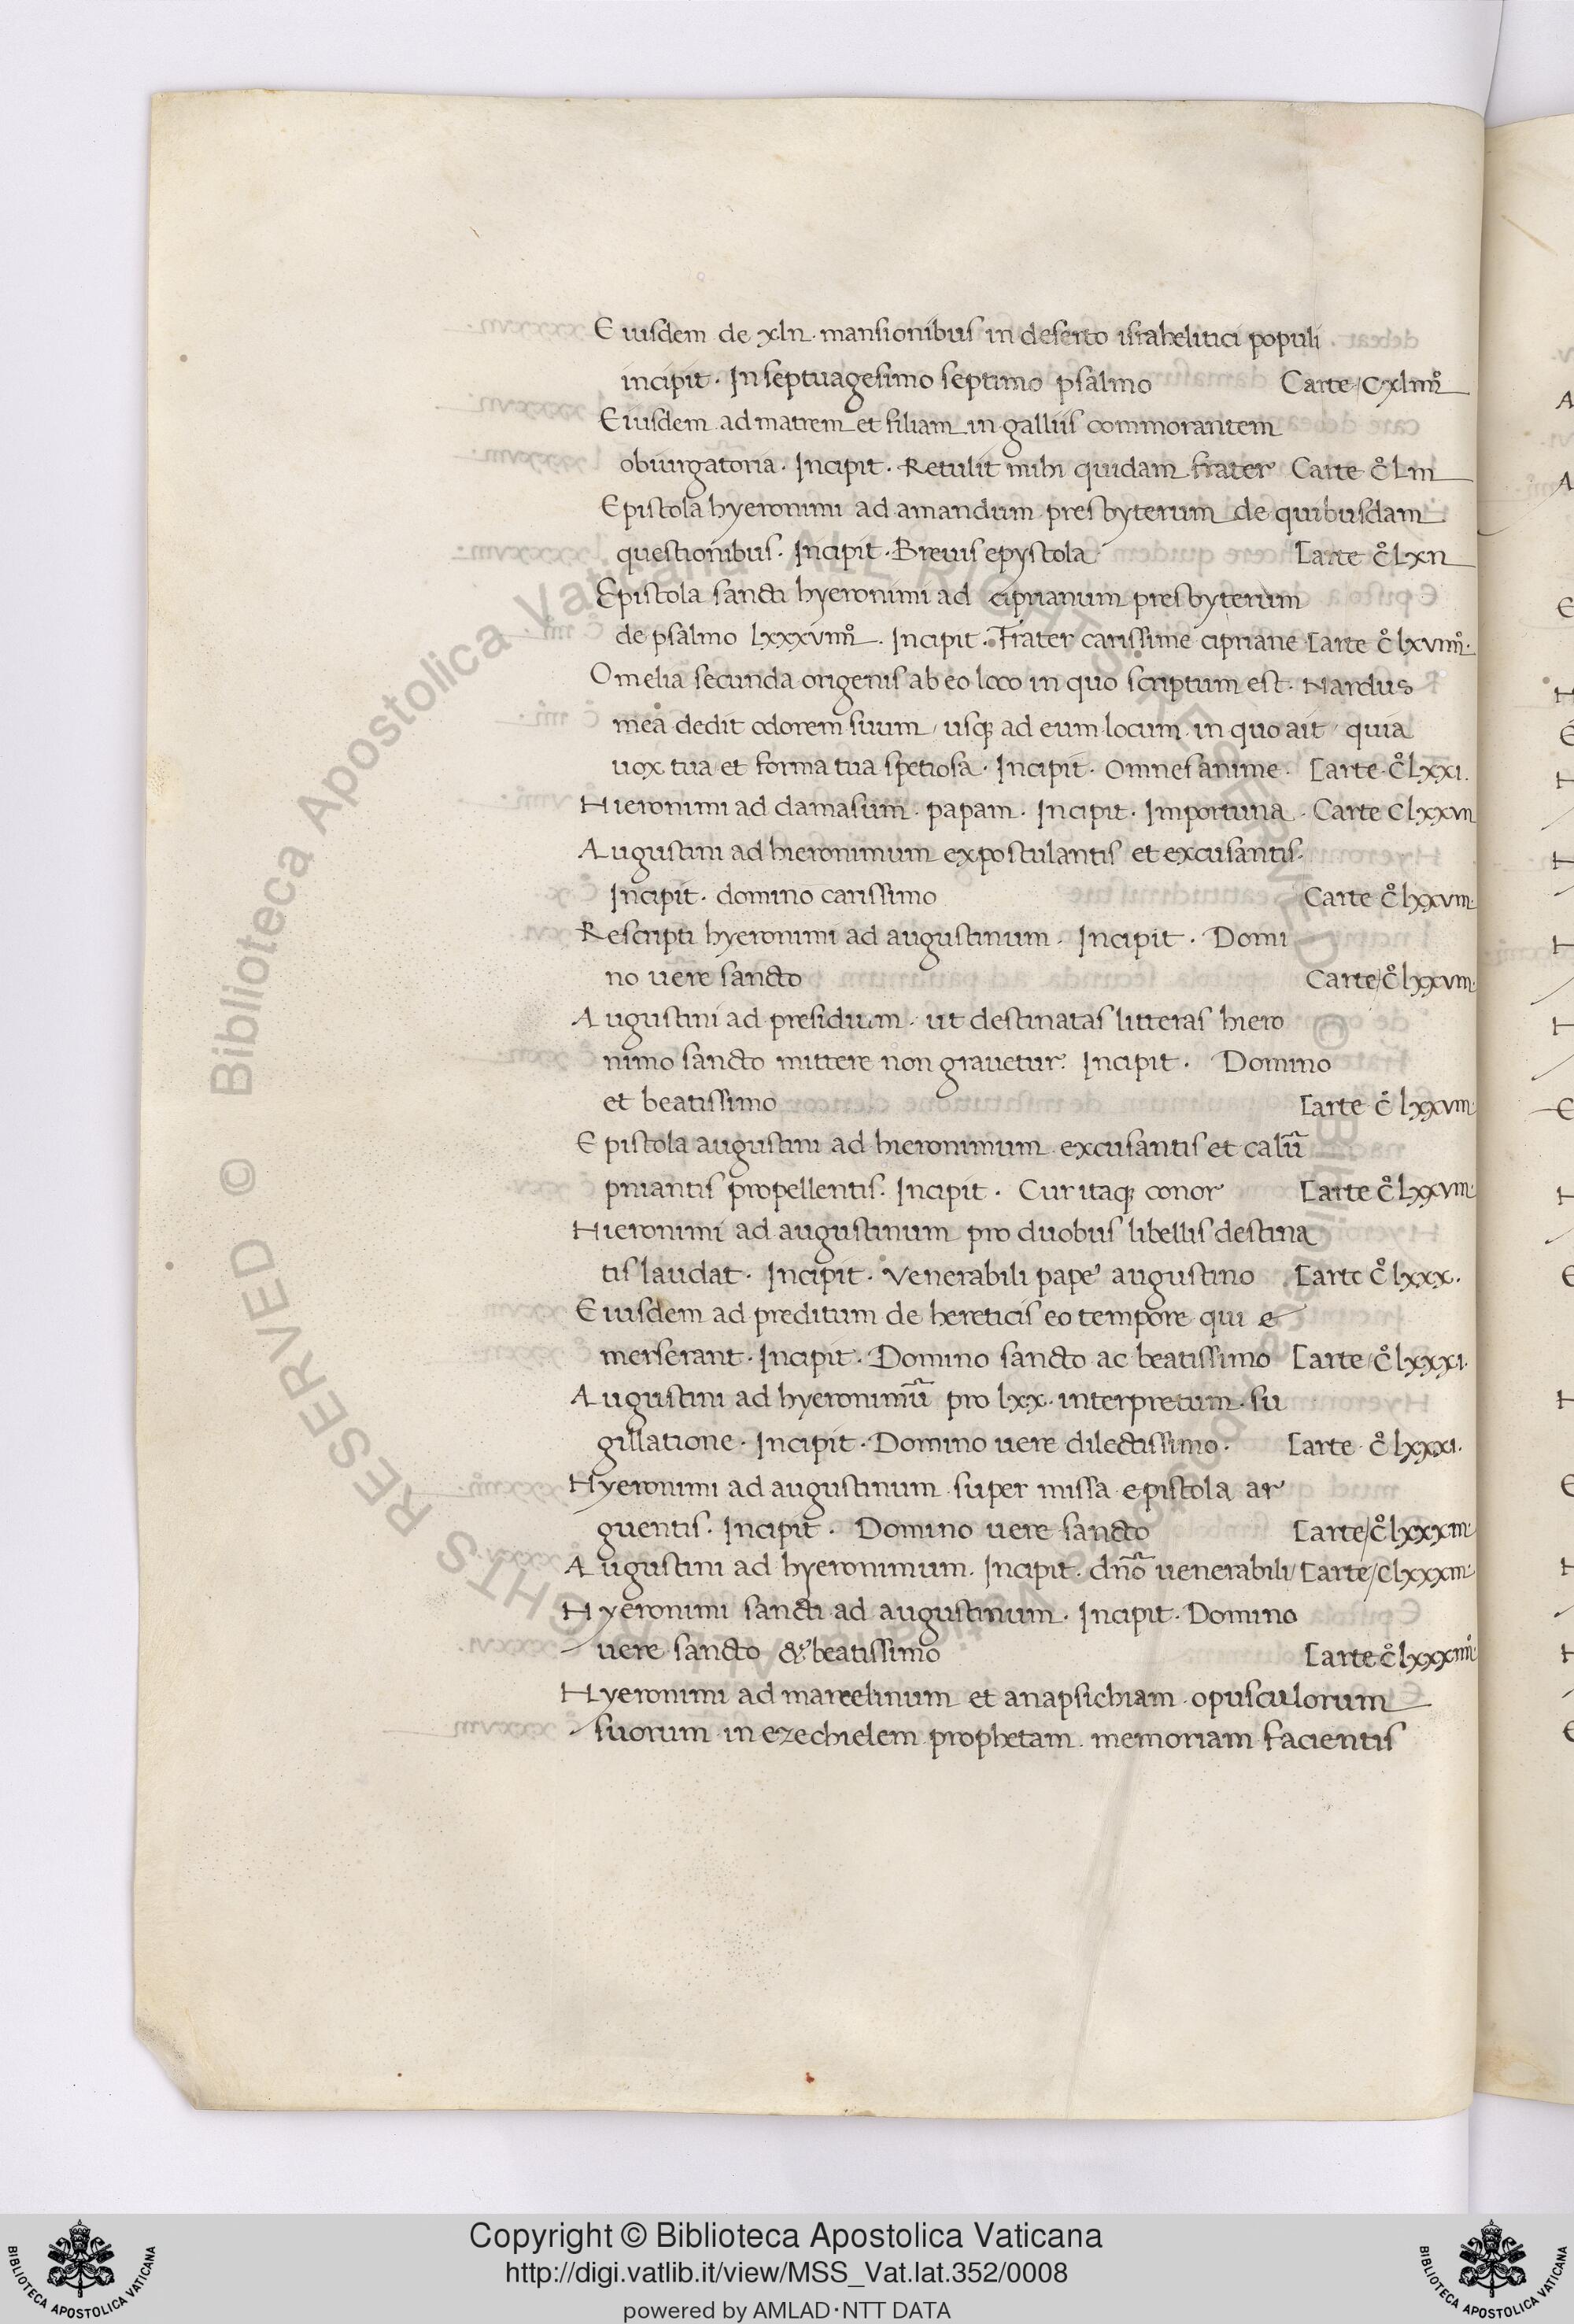 Eiusdem de xlii. mansionibus in deserto israhelitici populi
incipit. In septuagesimo septimo psalmo Carte / Cxliiii°
Eiusdem ad matrem et filiam in galliis commorantem
obiurgatoria. Incipit. Retulit mihi quidam frater Carte c° Liii
Epistola hyeronimi ad amandum presbyterum de quibusdam
questionibus. Incipit. Breuis epystola Carte c° Lxii
Epistola sancti hyeronimi ad ciprianum presbyterum
de psalmo lxxxviiii°. Incipit. Frater carissime cipriane Carte c° lxviiii°.
Omelia secunda origenis ab eo loco in quo scriptum est. Nardus
mea dedit odorem suum / usq; ad eum locum in quo ait / quia
uox tua et forma tua spetiosa. Incipit. Omnes anime. Carte c° Lxxi.
Hieronimi ad damasum. papam. Incipit. Importuna. Carte C lxxvii
Augustini ad hieronimum expostulantis et excusantis.
Incipit. domino carissimo Carte c° lxxviii.
Rescripti hyeronimi ad augustinum. Incipit. Domi
no uere sancto Carte / c° lxxviii.
Augustini ad presidium. ut destinatas litteras hiero
nimo sancto mittere non grauetur. Incipit. Domino
et beatissimo Carte c° lxxviii.
Epistola augustini ad hieronimum excusantis et calū
pniantis propellentis. Incipit. Cur itaq; conor Carte c° lxxviii.
Hieronimi ad augustinum pro duobus libellis destina
tis laudat. Incipit. Venerabili pape augustino Carte c° lxxx.
Eiusdem ad preditum de hereticis eo tempore qui e
merserant. Incipit. Domino sancto ac beatissimo Carte / c° lxxxi.
Augustini ad hyeronimū pro lxx. interpretum. su
gillatione. Incipit. Domino uere dilectissimo. Carte c° lxxxi.
Hyeronimi ad augustinum super missa epistola ar
guentis. Incipit. Domino uere sancto Carte / c° lxxxiii.
Augustini ad hyeronimum. Incipit. dn̄o uenerabili / Carte / clxxxiii.
Hyeronimi sancti ad augustinum. Incipit. Domino
uere sancto & beatissimo Carte c° lxxxiiii°.
Hyeronimi ad marcelinum et anapsichiam opusculorum
suorum in ezechielem prophetam. memoriam facientis
Copyright © Biblioteca Apostolica Vaticana
http://digi.vatlib.it/view/MSS_Vat.lat.352/0008
powered by AMLAD·NTT DATA